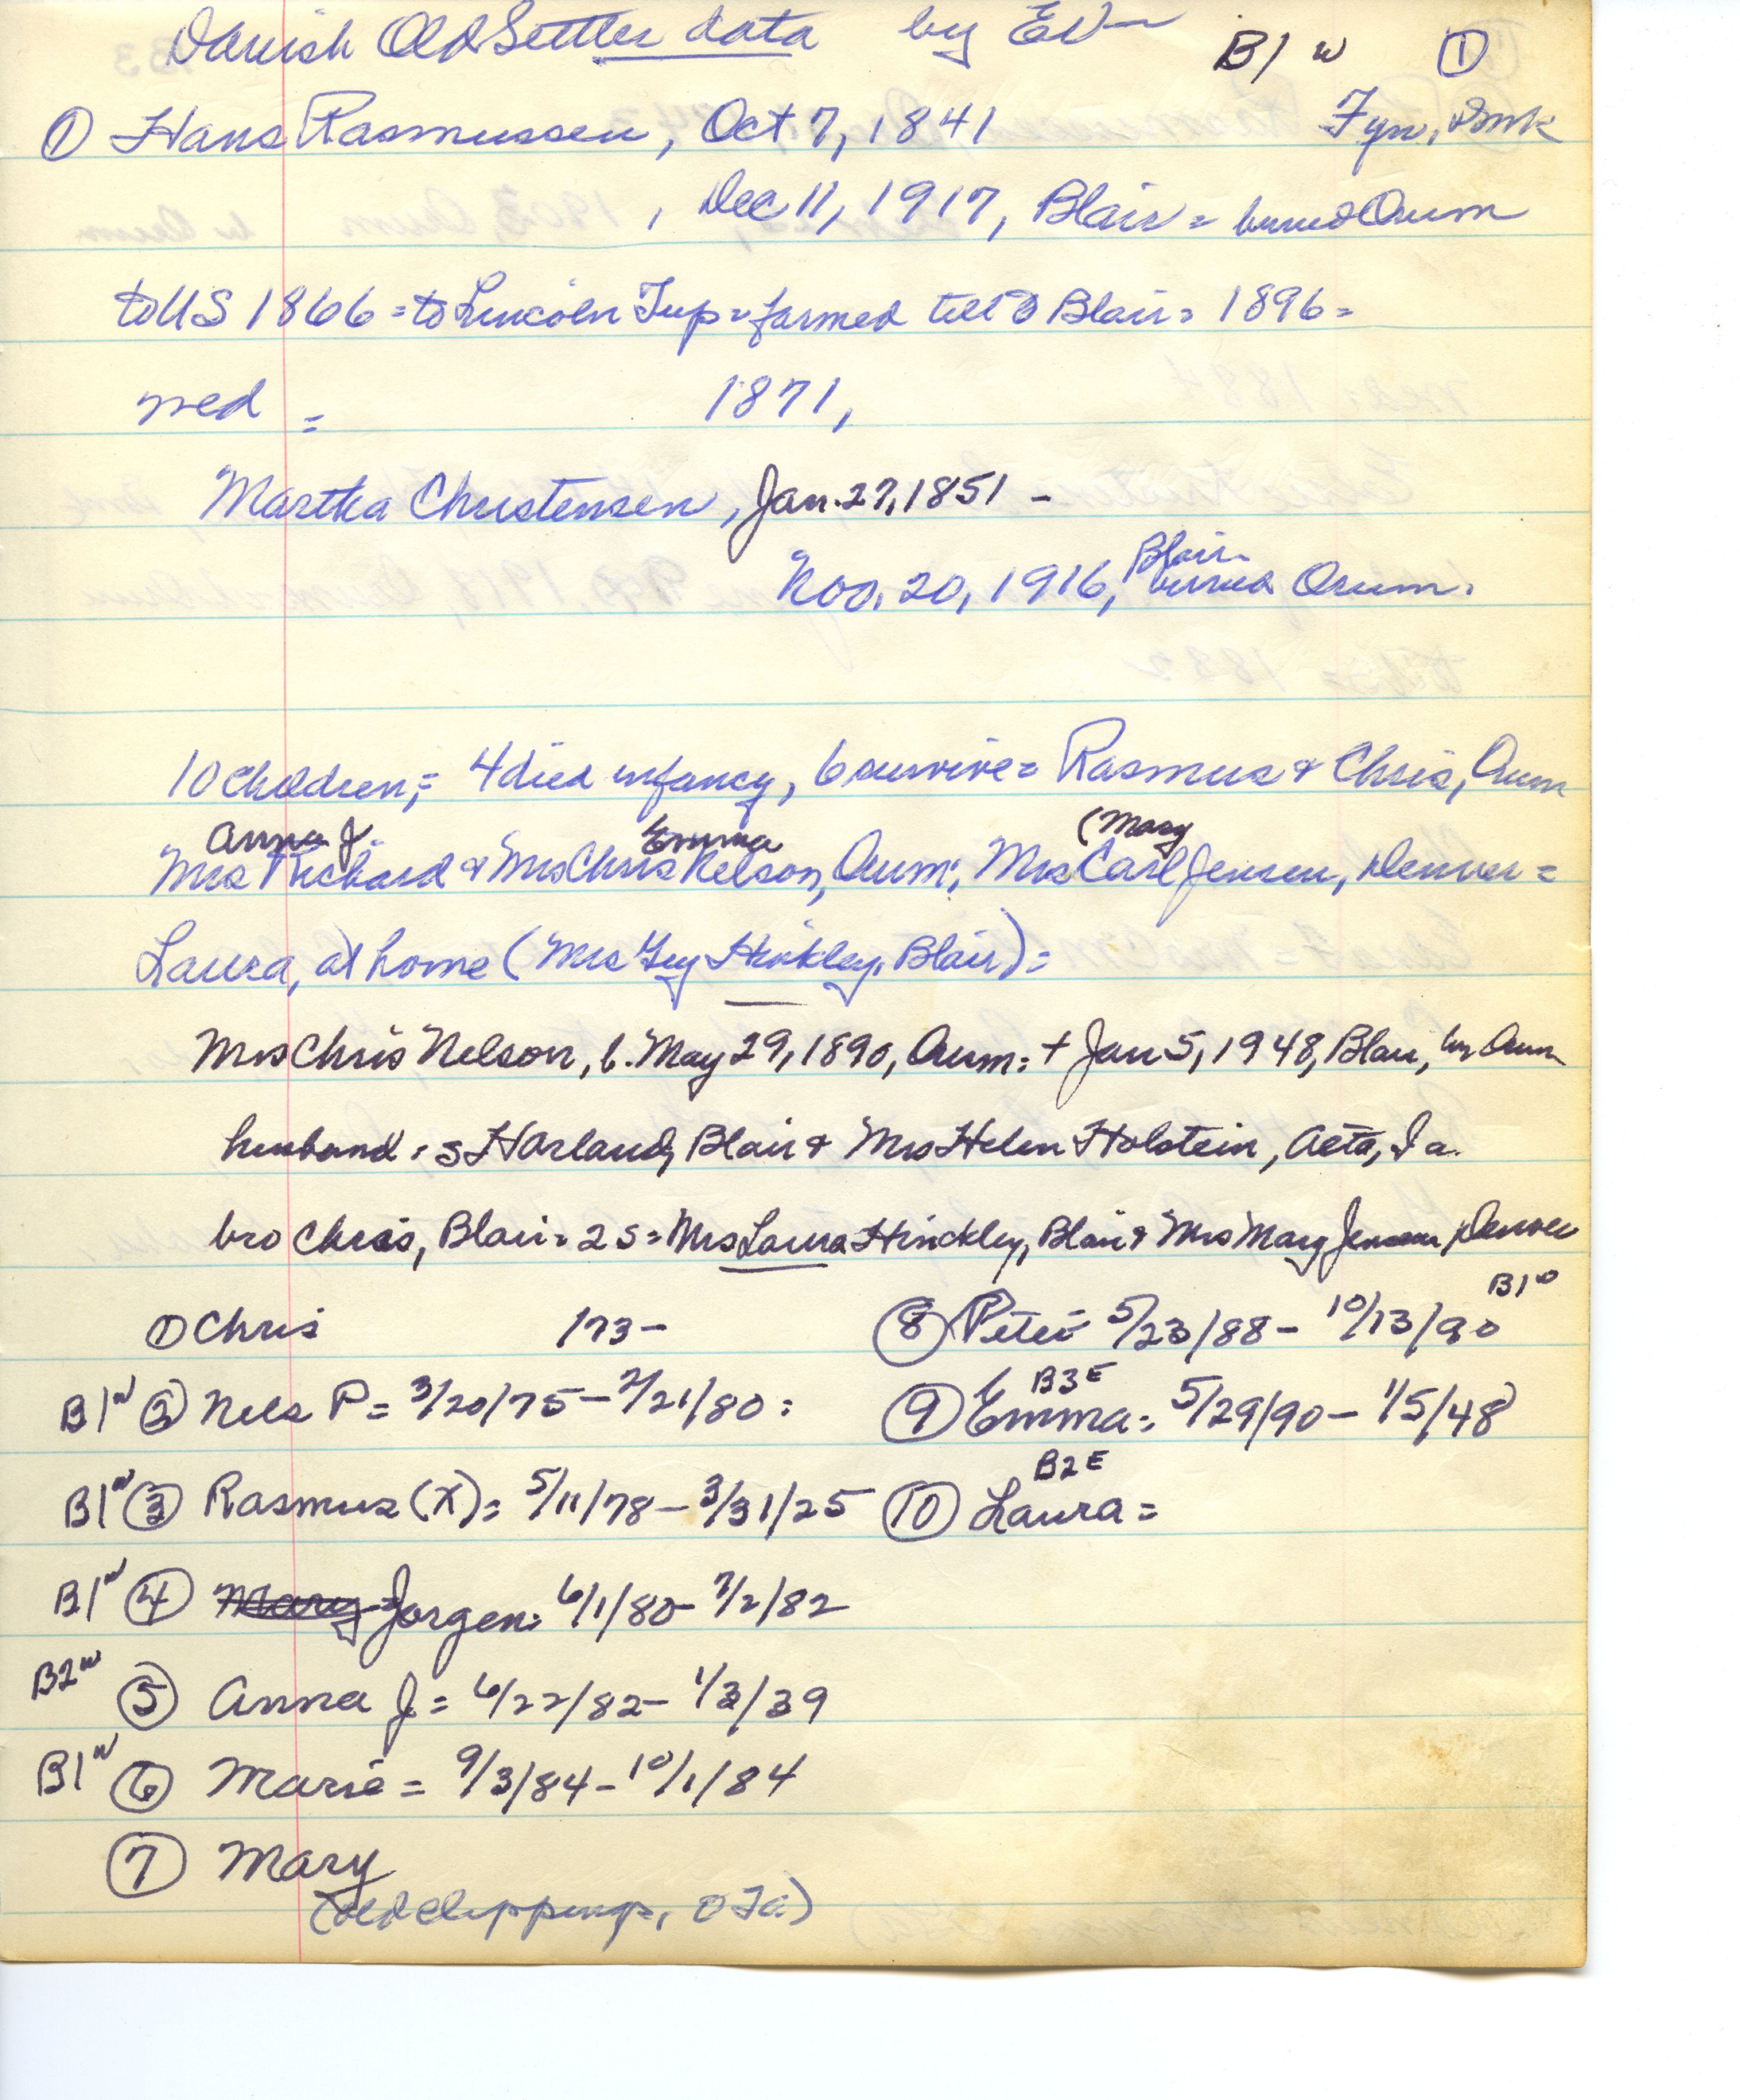 Danish Old Settler data by EV
B1 W ①
① Hans Rasmussen, Oct 7, 1841 Fyn, Dmk
, Dec 11, 1917, Blair = buried Orum
to US 1866 = to Lincoln Twp = farmed till to Blair = 1896 =
med = 1871,
Martha Christensen, Jan. 27, 1851 -
Nov. 20, 1916, Blair buried Orum.
10 children, = 4 died infancy, 6 survive = Rasmus & Chris, Orum
Anna J. Emma (Mary
Mrs Richard & Mrs Chris Nelson, Orum; Mrs Carl Jensen, Denver =
Laura, at home (Mrs Guy Hinkley, Blair) =
Mrs Chris Nelson, b. May 29, 1890, Orum: + Jan 5, 1948, Blair, bur Orum
husband: s Harland, Blair & Mrs Helen Holstein, Ia.
bro Chris, Blair = 2 s = Mrs Laura Hinckley, Blair & Mrs Mary Jensen, Denver
① Chris 173 -
B1W ② Nels P = 3/20/75 - 2/21/80:
B1W ③ Rasmus (X) = 5/11/78 - 3/31/25
B1W ④ Mary Jorgen: 6/1/80 - 7/2/82
B2W ⑤ Anna J = 6/22/82 - 1/3/39
B1W ⑥ Marie = 9/3/84 - 10/1/84
⑦ Mary
⑧ Peter = 5/23/88 - 10/13/90 B1W
⑨ Emma: B3E 5/29/90 - 1/5/48
⑩ Laura = B2E
(old clippings, )